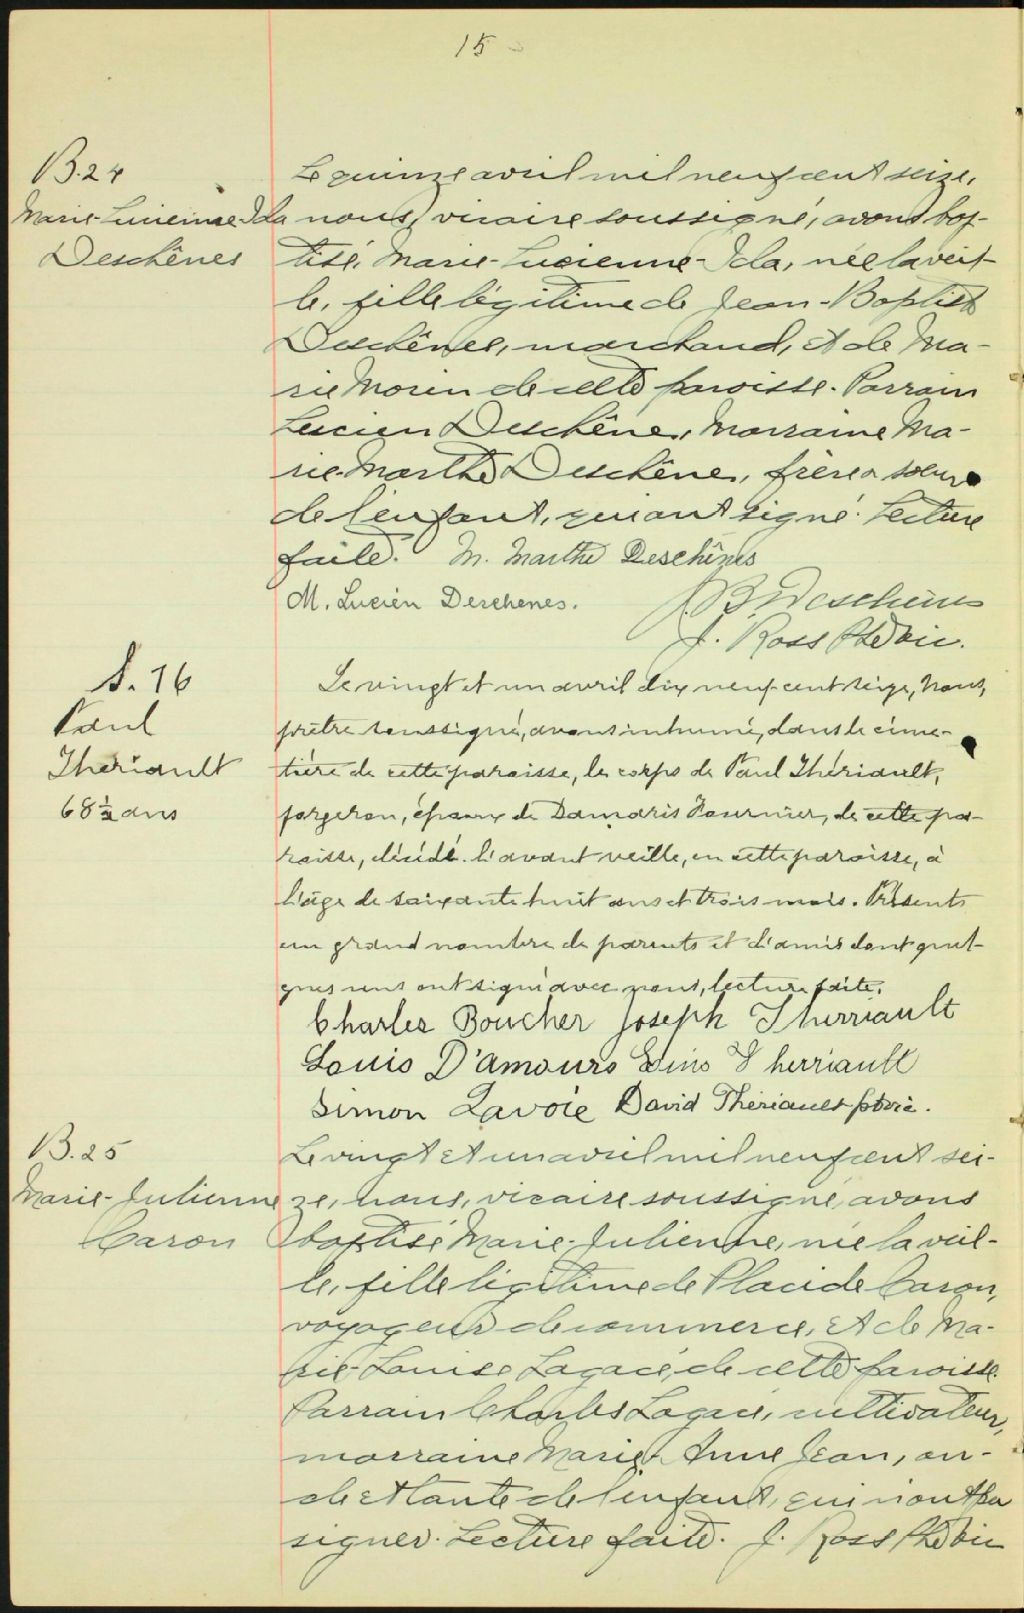 15
B.24
Marie-Lucienne-Ida
Deschênes
Le quinze avril mil neuf cent seize,
nous, vicaire soussigné, avons bap-
tisé, Marie-Lucienne-Ida, née la veil-
le, fille légitime de Jean-Baptiste
Deschênes, marchand, et de Ma-
rie Morin de cette paroisse. Parrain
Lucien Deschêne, Marraine Ma-
rie-Marthe Deschêne, frère & soeur
de l'enfant, qui ont signé. Lecture
faite. M. Marthe Deschênes
M. Lucien Deschenes. J. B. Deschênes
J. Ross Ptre Vic.
S. 16
Paul
Thériault
68 1/2 ans
Le vingt et un avril dix neuf cent seize, Nous,
prêtre soussigné, avons inhumé, dans le cime-
tière de cette paroisse, le corps de Paul Thériault,
forgeron, époux de Damaris Fournier, de cette pa-
roisse, décédé l'avant veille, en cette paroisse, à
l'âge de soixante huit ans et trois mois. Présents
un grand nombre de parents et d'amis dont quel-
ques uns ont signé avec nous, lecture faite.
Charles Boucher Joseph Therriault
Louis D'amours Therriault
Simon Lavoie David Thériault ptre.
B. 25
Marie-Julienne
Caron
Le vingt et un avril mil neuf cent sei-
ze, nous, vicaire soussigné, avons
baptisé Marie-Julienne, née la veil-
le, fille légitime de Placide Caron,
voyageur de commerce, et de Ma-
rie-Louise Lagacé, de cette paroisse.
Parrain Charles Lagacé, cultivateur,
marraine Marie-Anne Jean, on-
cle et tante de l'enfant, qui n'ont pu
signer. Lecture faite. J. Ross Ptre Vic